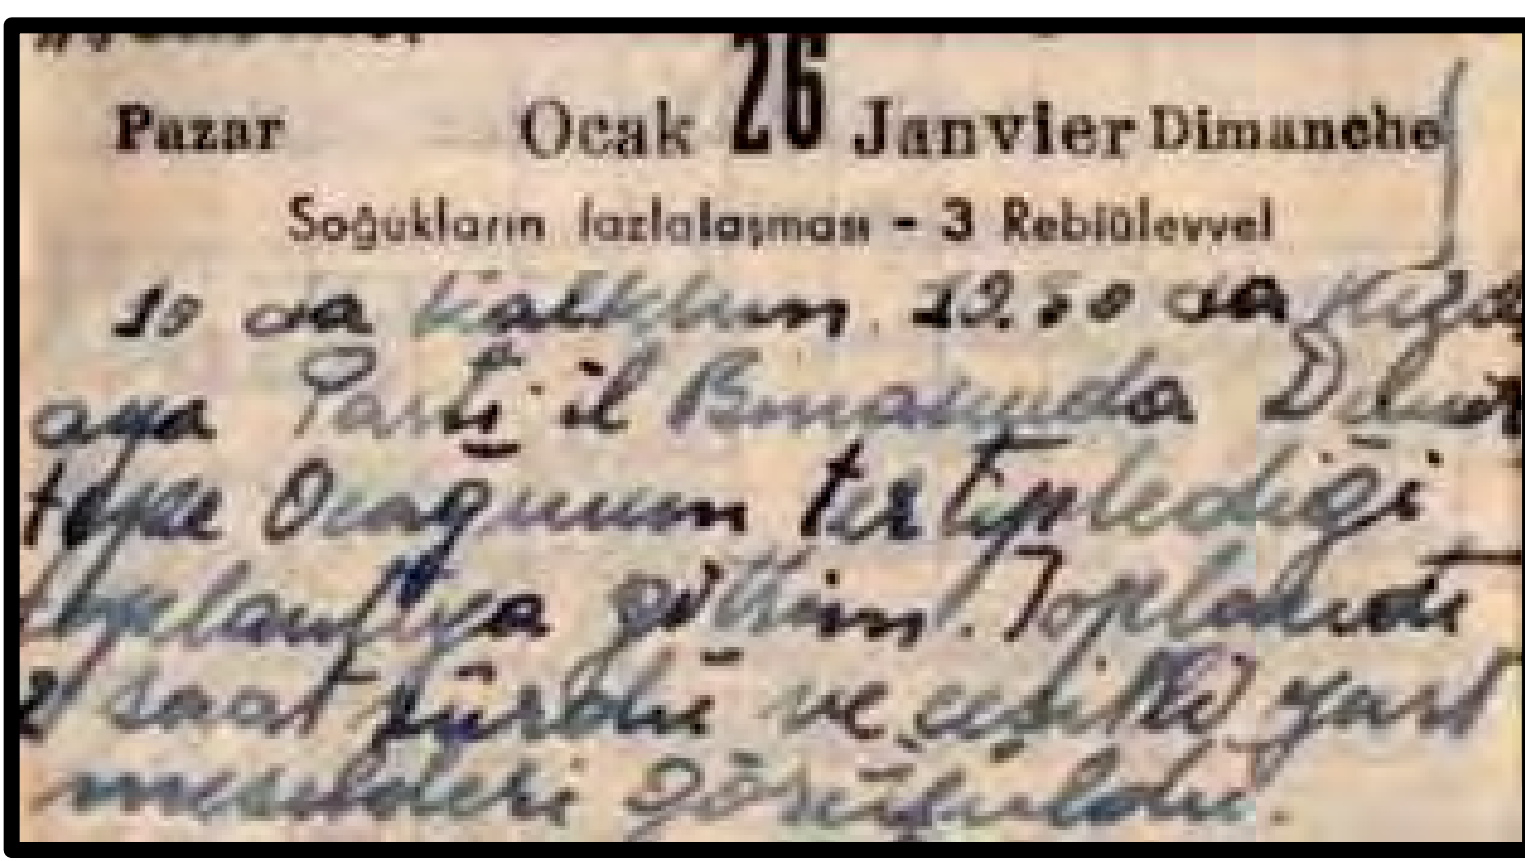 Pazar Ocak 26 Janvier Dimanche
Soğukların fazlalaşması - 3 Rebiülevvel
10 da kalktım.
aya Parti il Binasında
tepe Ocağının tertiplediği
toplantıya gittim. Toplantı
2 saat sürdü ve çeşitli
meseleleri görüşüldü.